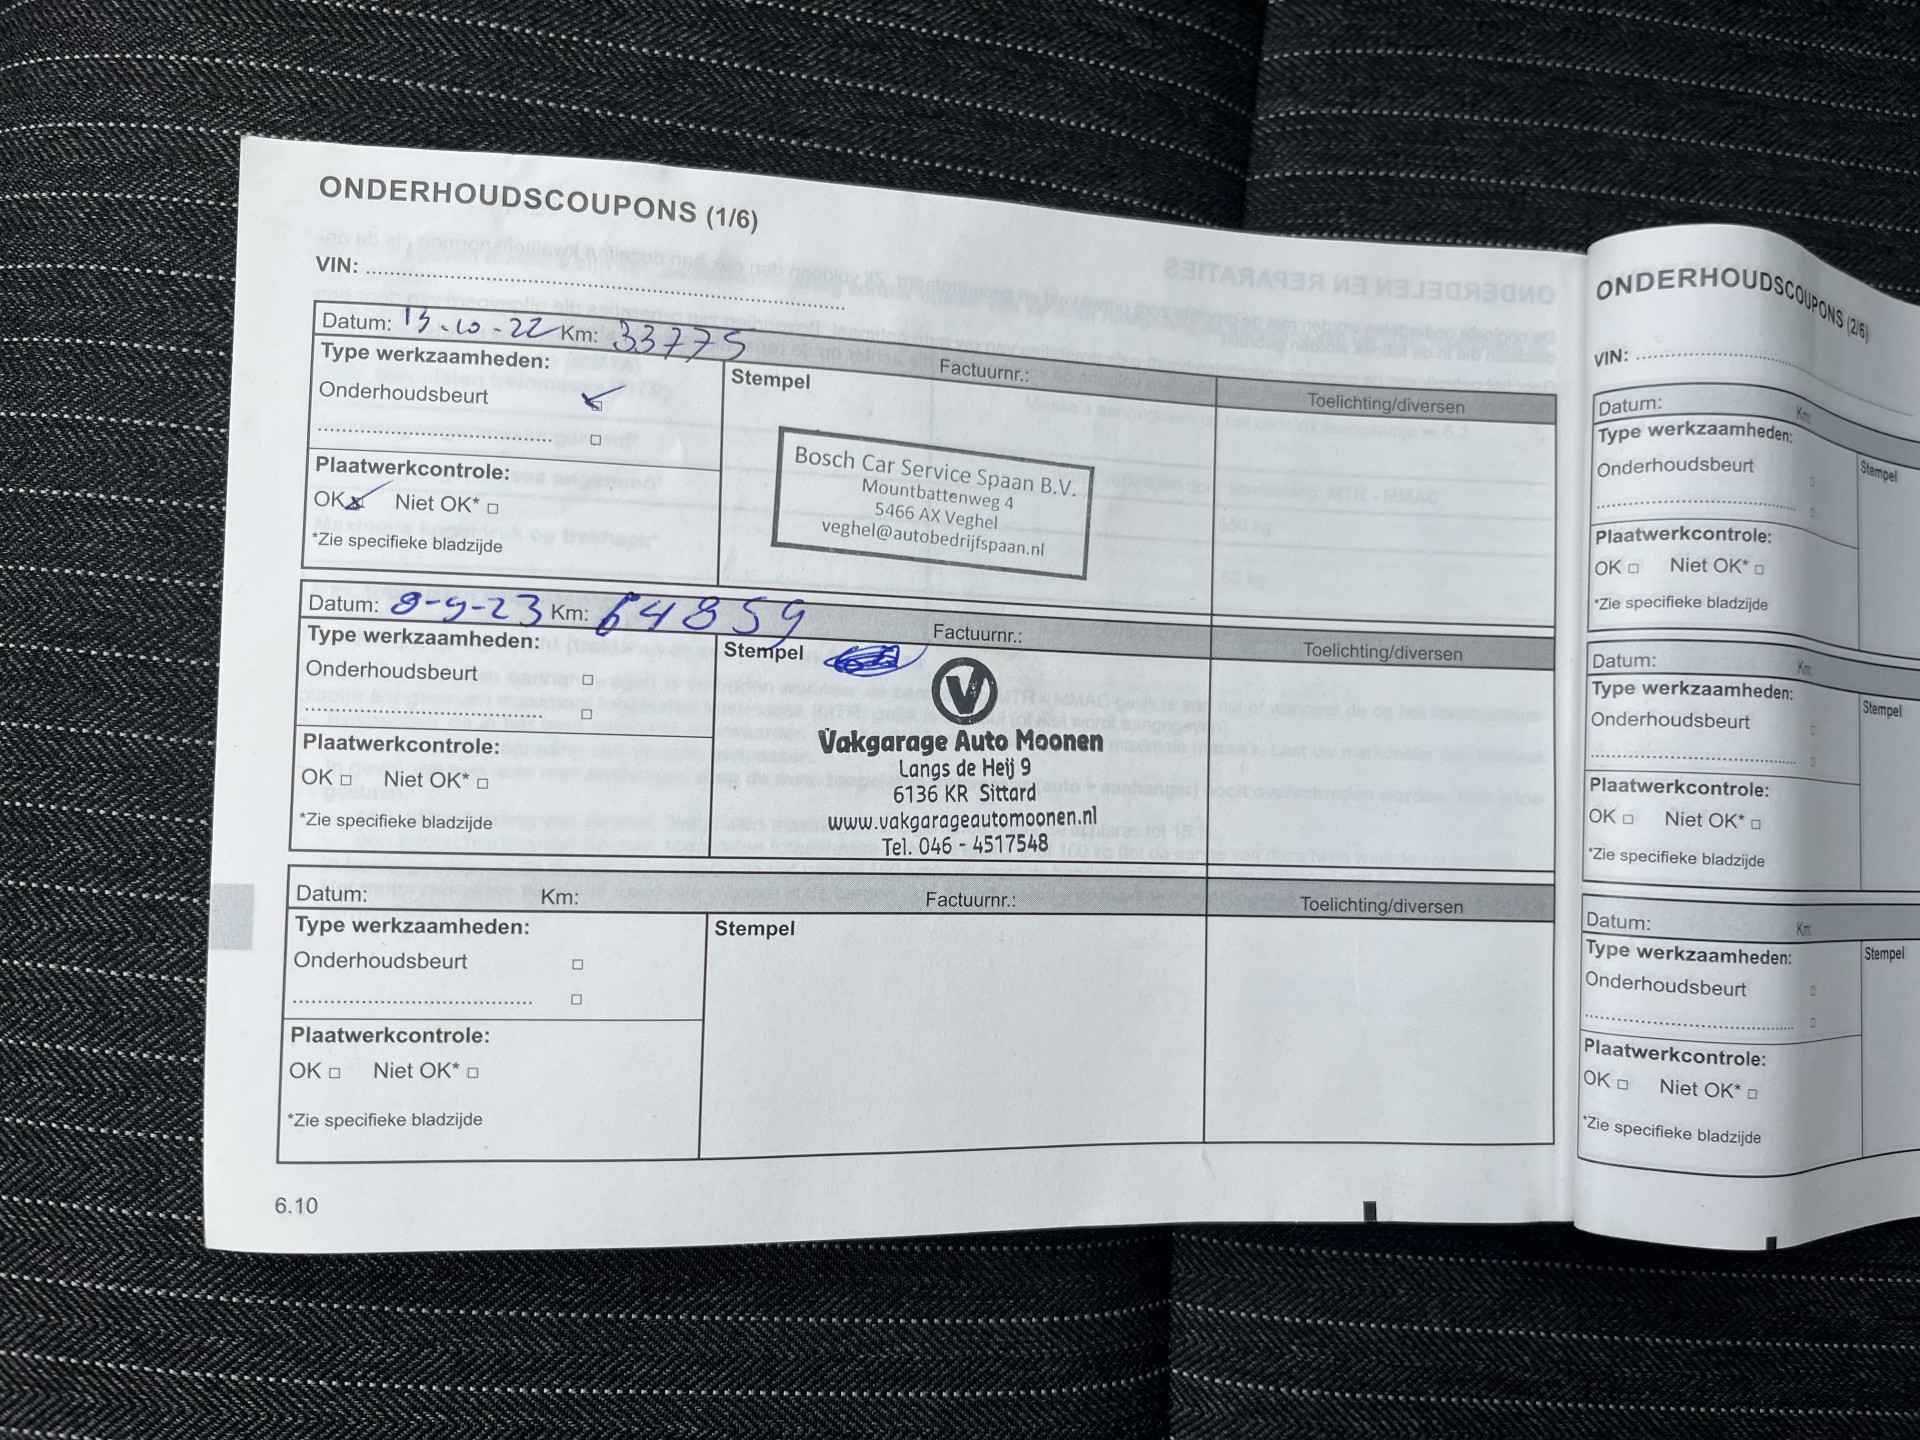 ONDERHOUDSCOUPONS (1/6)
VIN:
Datum: 13-10-22 Km: 33775 Factuurnr.:
Type werkzaamheden:
Stempel
Toelichting/diversen
Onderhoudsbeurt
Plaatwerkcontrole:
OK Niet OK*
*Zie specifieke bladzijde
Bosch Car Service Spaan B.V.
Mountbattenweg 4
5466 AX Veghel
veghel@autobedrijfspaan.nl
Datum: 8-9-23 Km: 64859 Factuurnr.:
Type werkzaamheden:
Stempel
Toelichting/diversen
Onderhoudsbeurt
Plaatwerkcontrole:
OK Niet OK*
*Zie specifieke bladzijde
V
Vakgarage Auto Moonen
Langs de Heij 9
6136 KR Sittard
www.vakgarageautomoonen.nl
Tel. 046 - 4517548
Datum: Km: Factuurnr.:
Toelichting/diversen
Type werkzaamheden:
Stempel
Onderhoudsbeurt
Plaatwerkcontrole:
OK Niet OK*
*Zie specifieke bladzijde
6.10
ONDERHOUDSCOUPONS (2/6)
VIN:
Datum: Km:
Type werkzaamheden:
Stempel
Onderhoudsbeurt
Plaatwerkcontrole:
OK Niet OK*
*Zie specifieke bladzijde
Datum: Km:
Type werkzaamheden:
Stempel
Onderhoudsbeurt
Plaatwerkcontrole:
OK Niet OK*
*Zie specifieke bladzijde
Datum: Km:
Type werkzaamheden:
Stempel
Onderhoudsbeurt
Plaatwerkcontrole:
OK Niet OK*
*Zie specifieke bladzijde